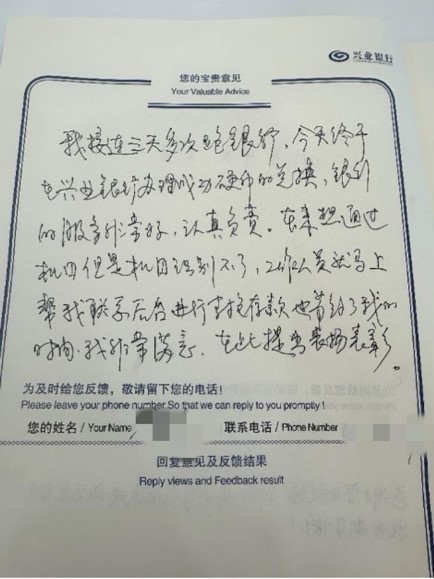 兴业银行
您的宝贵意见
Your Valuable Advice
我接连三天多次跑银行，今天终于
在兴业银行办理成功硬币的兑换，银行
的服务非常好，认真负责。本来想通过
机, 但是机识别不了，工作人员就马上
帮我联系后台进行直接存款也节约了我的
时间，我非常满意，在此提出表扬表彰。
为及时给您反馈，敬请留下您的电话！
Please leave your phone number.So that we can reply to you promptly !
您的姓名 / Your Name
联系电话 / Phone Number
回复意见及反馈结果
Reply views and Feedback result